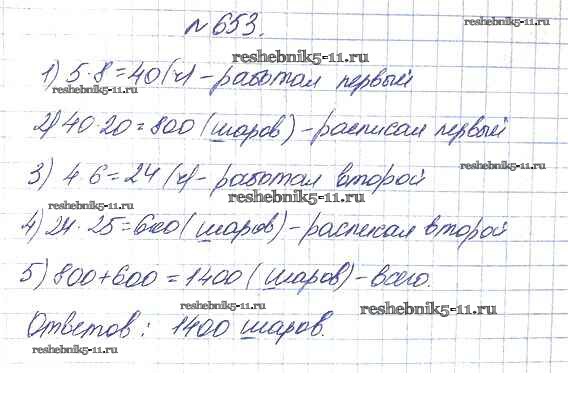 №653.
reshebnik5-11.ru
reshebnik5-11.ru
1) 5·8=40(ч)-работал первый
reshebnik5-11.ru
2) 40·20=800 (шаров)-расписал первый
3) 4·6=24(ч)-работал второй
reshebnik5-11.ru
reshebnik5-11.ru
reshebnik5-11.ru
4) 24·25=600 (шаров)-расписал второй
5) 800+600=1400 (шаров)-всего.
reshebnik5-11.ru
reshebnik5-11.ru
Ответов: 1400 шаров.
reshebnik5-11.ru